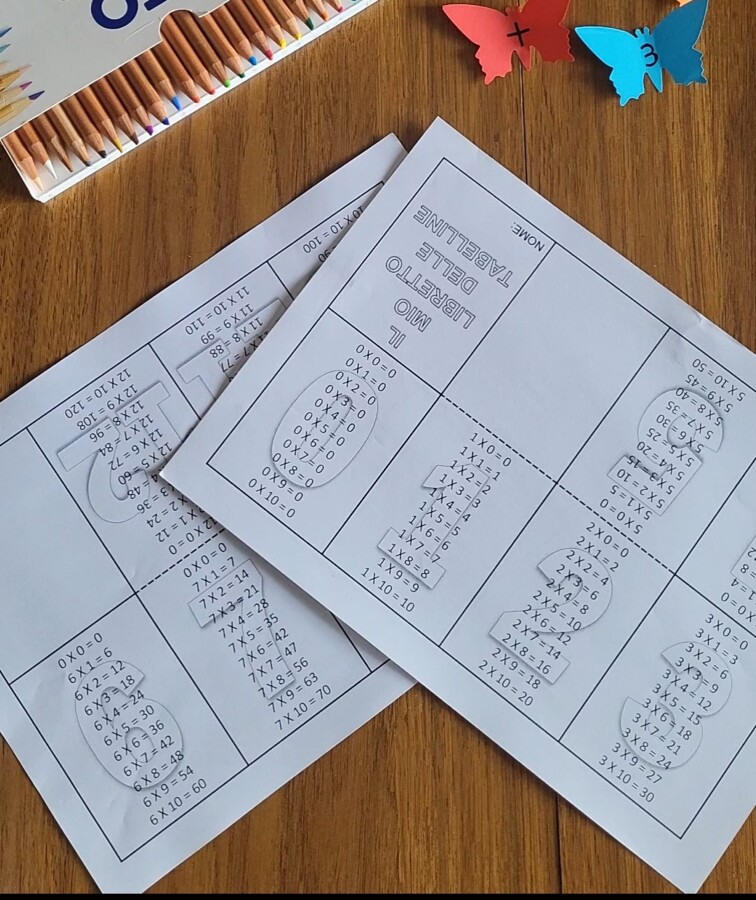 IL
MIO
LIBRETTO
DELLE
TABELLINE
NOME:
0 X 0 = 0
0 X 1 = 0
0 X 2 = 0
0 X 3 = 0
0 X 4 = 0
0 X 5 = 0
0 X 6 = 0
0 X 7 = 0
0 X 8 = 0
0 X 9 = 0
0 X 10 = 0
0
1 X 0 = 0
1 X 1 = 1
1 X 2 = 2
1 X 3 = 3
1 X 4 = 4
1 X 5 = 5
1 X 6 = 6
1 X 7 = 7
1 X 8 = 8
1 X 9 = 9
1 X 10 = 10
1
2 X 0 = 0
2 X 1 = 2
2 X 2 = 4
2 X 3 = 6
2 X 4 = 8
2 X 5 = 10
2 X 6 = 12
2 X 7 = 14
2 X 8 = 16
2 X 9 = 18
2 X 10 = 20
2
3 X 0 = 0
3 X 1 = 3
3 X 2 = 6
3 X 3 = 9
3 X 4 = 12
3 X 5 = 15
3 X 6 = 18
3 X 7 = 21
3 X 8 = 24
3 X 9 = 27
3 X 10 = 30
3
5 X 0 = 0
5 X 1 = 5
5 X 2 = 10
5 X 3 = 15
5 X 4 = 20
5 X 5 = 25
5 X 6 = 30
5 X 7 = 35
5 X 8 = 40
5 X 9 = 45
5 X 10 = 50
5
0 X 0 = 0
6 X 1 = 6
6 X 2 = 12
6 X 3 = 18
6 X 4 = 24
6 X 5 = 30
6 X 6 = 36
6 X 7 = 42
6 X 8 = 48
6 X 9 = 54
6 X 10 = 60
6
0 X 0 = 0
7 X 1 = 7
7 X 2 = 14
7 X 3 = 21
7 X 4 = 28
7 X 5 = 35
7 X 6 = 42
7 X 7 = 47
7 X 8 = 56
7 X 9 = 63
7 X 10 = 70
7
12 X 0 = 0
12 X 1 = 12
12 X 2 = 24
12 X 3 = 36
12 X 4 = 48
12 X 5 = 60
12 X 6 = 72
12 X 7 = 84
12 X 8 = 96
12 X 9 = 108
12 X 10 = 120
12
11 X 7 = 77
11 X 8 = 88
11 X 9 = 99
11 X 10 = 110
11
10 X 10 = 100
+
3